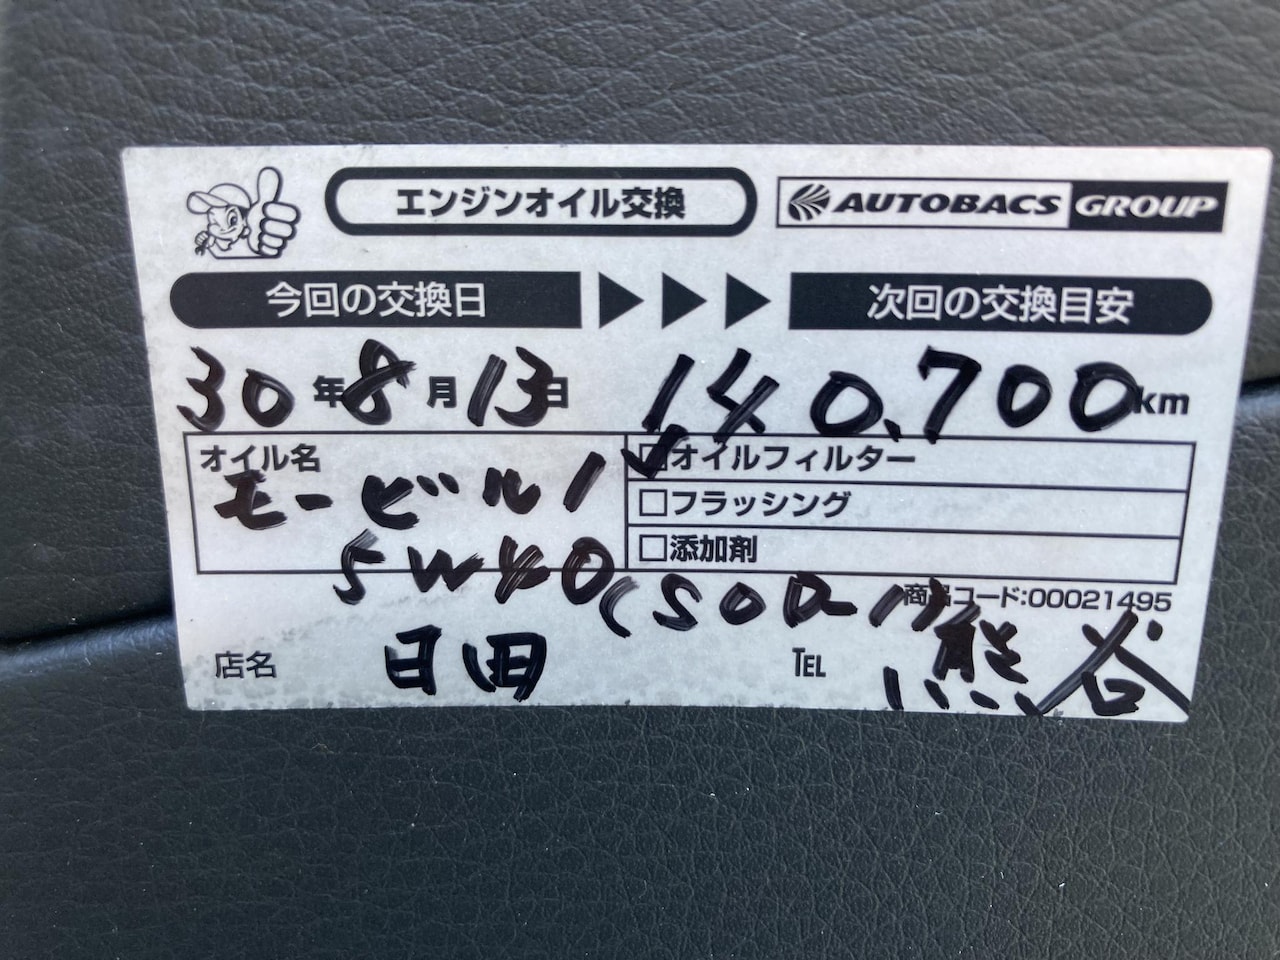 エンジンオイル交換
AUTOBACS GROUP
今回の交換日
次回の交換目安
30年8月13日
140,700km
オイル名
モービル1
5W40(SODα-1)
オイルフィルター
フラッシング
添加剤
商品コード:00021495
店名 日田
TEL
熊谷